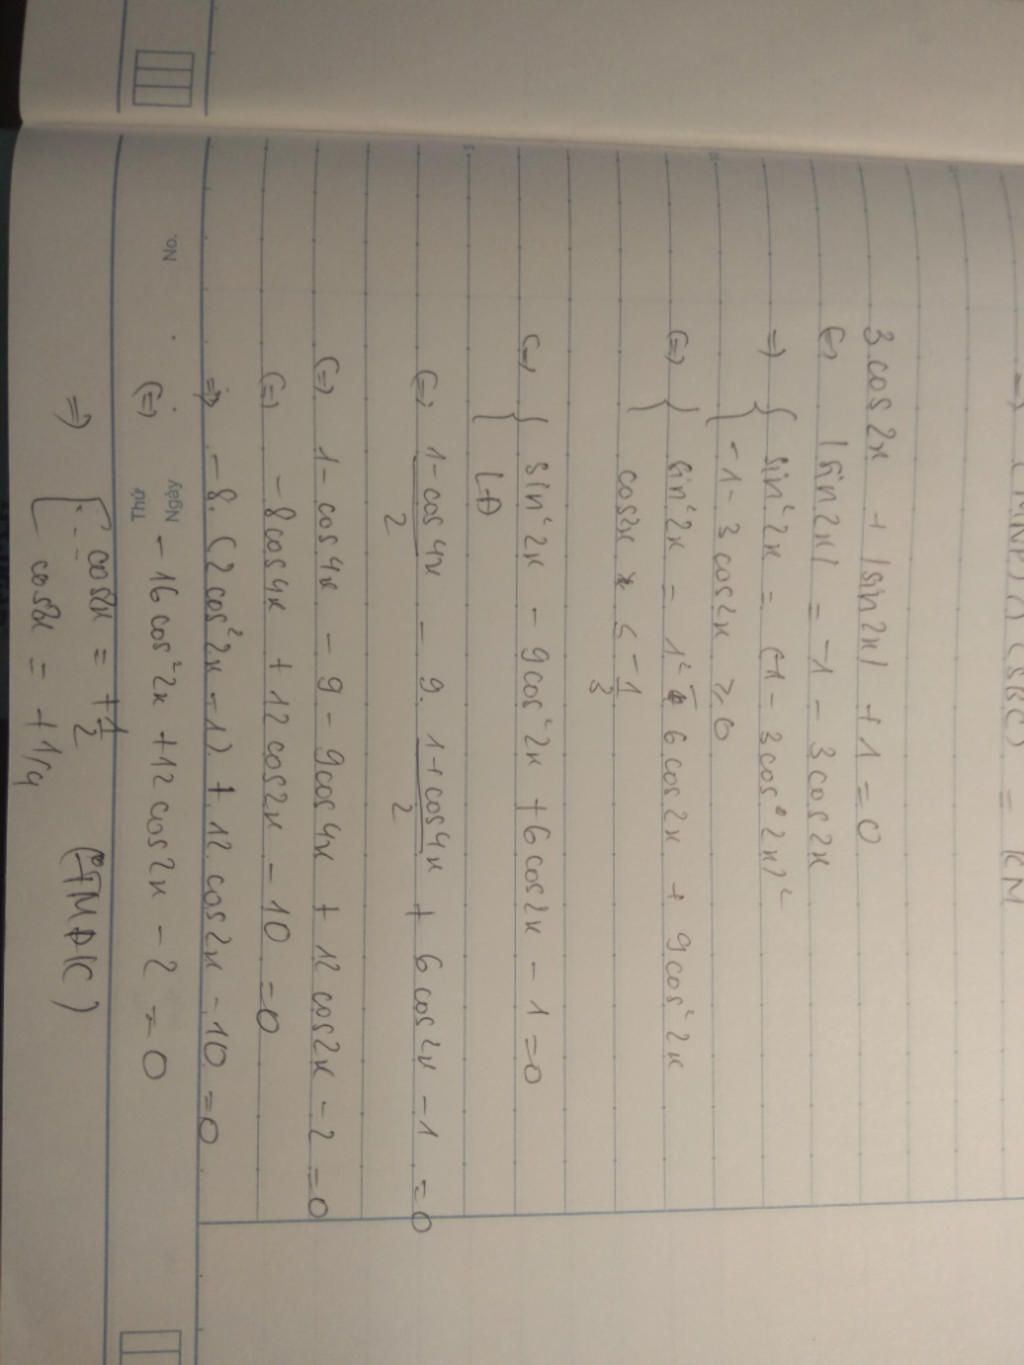 3 cos2x + |sin2x| + 1 = 0
(=) |sin2x| = -1 - 3cos2x
=) { sin²2x = (-1 - 3cos 2x)²
{ -1 - 3cos2x ≥ 0
(=) { sin²2x = 1² + 6cos2x + 9cos²2x
{ cos2x ≤ -1/3
(=) { sin²2x - 9cos²2x + 6cos2x - 1 = 0
{ LĐ
(=) (1 - cos4x)/2 - 9. (1 + cos4x)/2 + 6cos2x - 1 = 0
(=) 1 - cos4x - 9 - 9cos4x + 12cos2x - 2 = 0
(=) -8cos4x + 12cos2x - 10 = 0
=) -8.(2cos²2x - 1) + 12.cos2x - 10 = 0
No.
Ngày
Thứ
(=) -16cos²2x + 12cos2x - 2 = 0
=) [ cos2x = +1/2
[ cos2x = +1/4 (TMĐK)